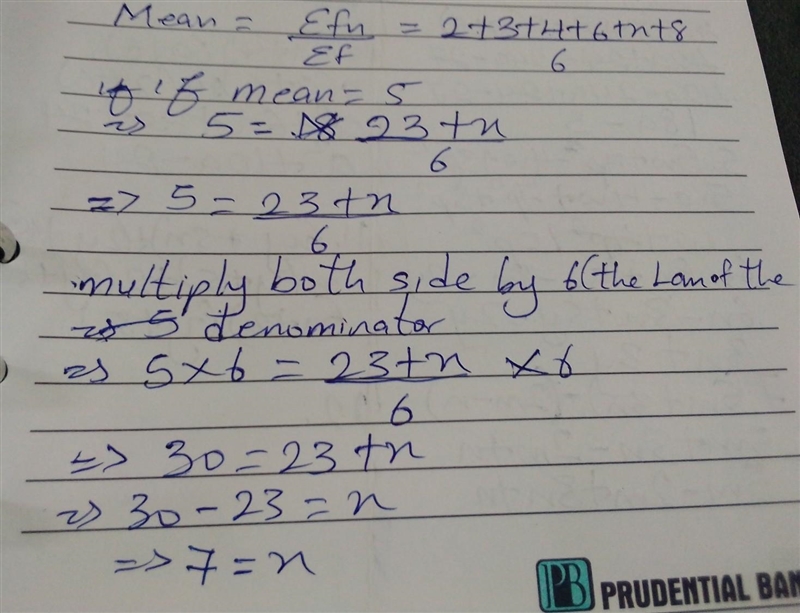 Mean = Σfn/Σf = 2+3+4+6+n+8/6
if mean = 5
=> 5 = 23+n/6
=> 5 = 23+n/6
multiply both side by 6(the Lcm of the
denominator
=> 5×6 = 23+n/6 ×6
=> 30 = 23+n
=> 30-23 = n
=> 7 = n
PB PRUDENTIAL BAN